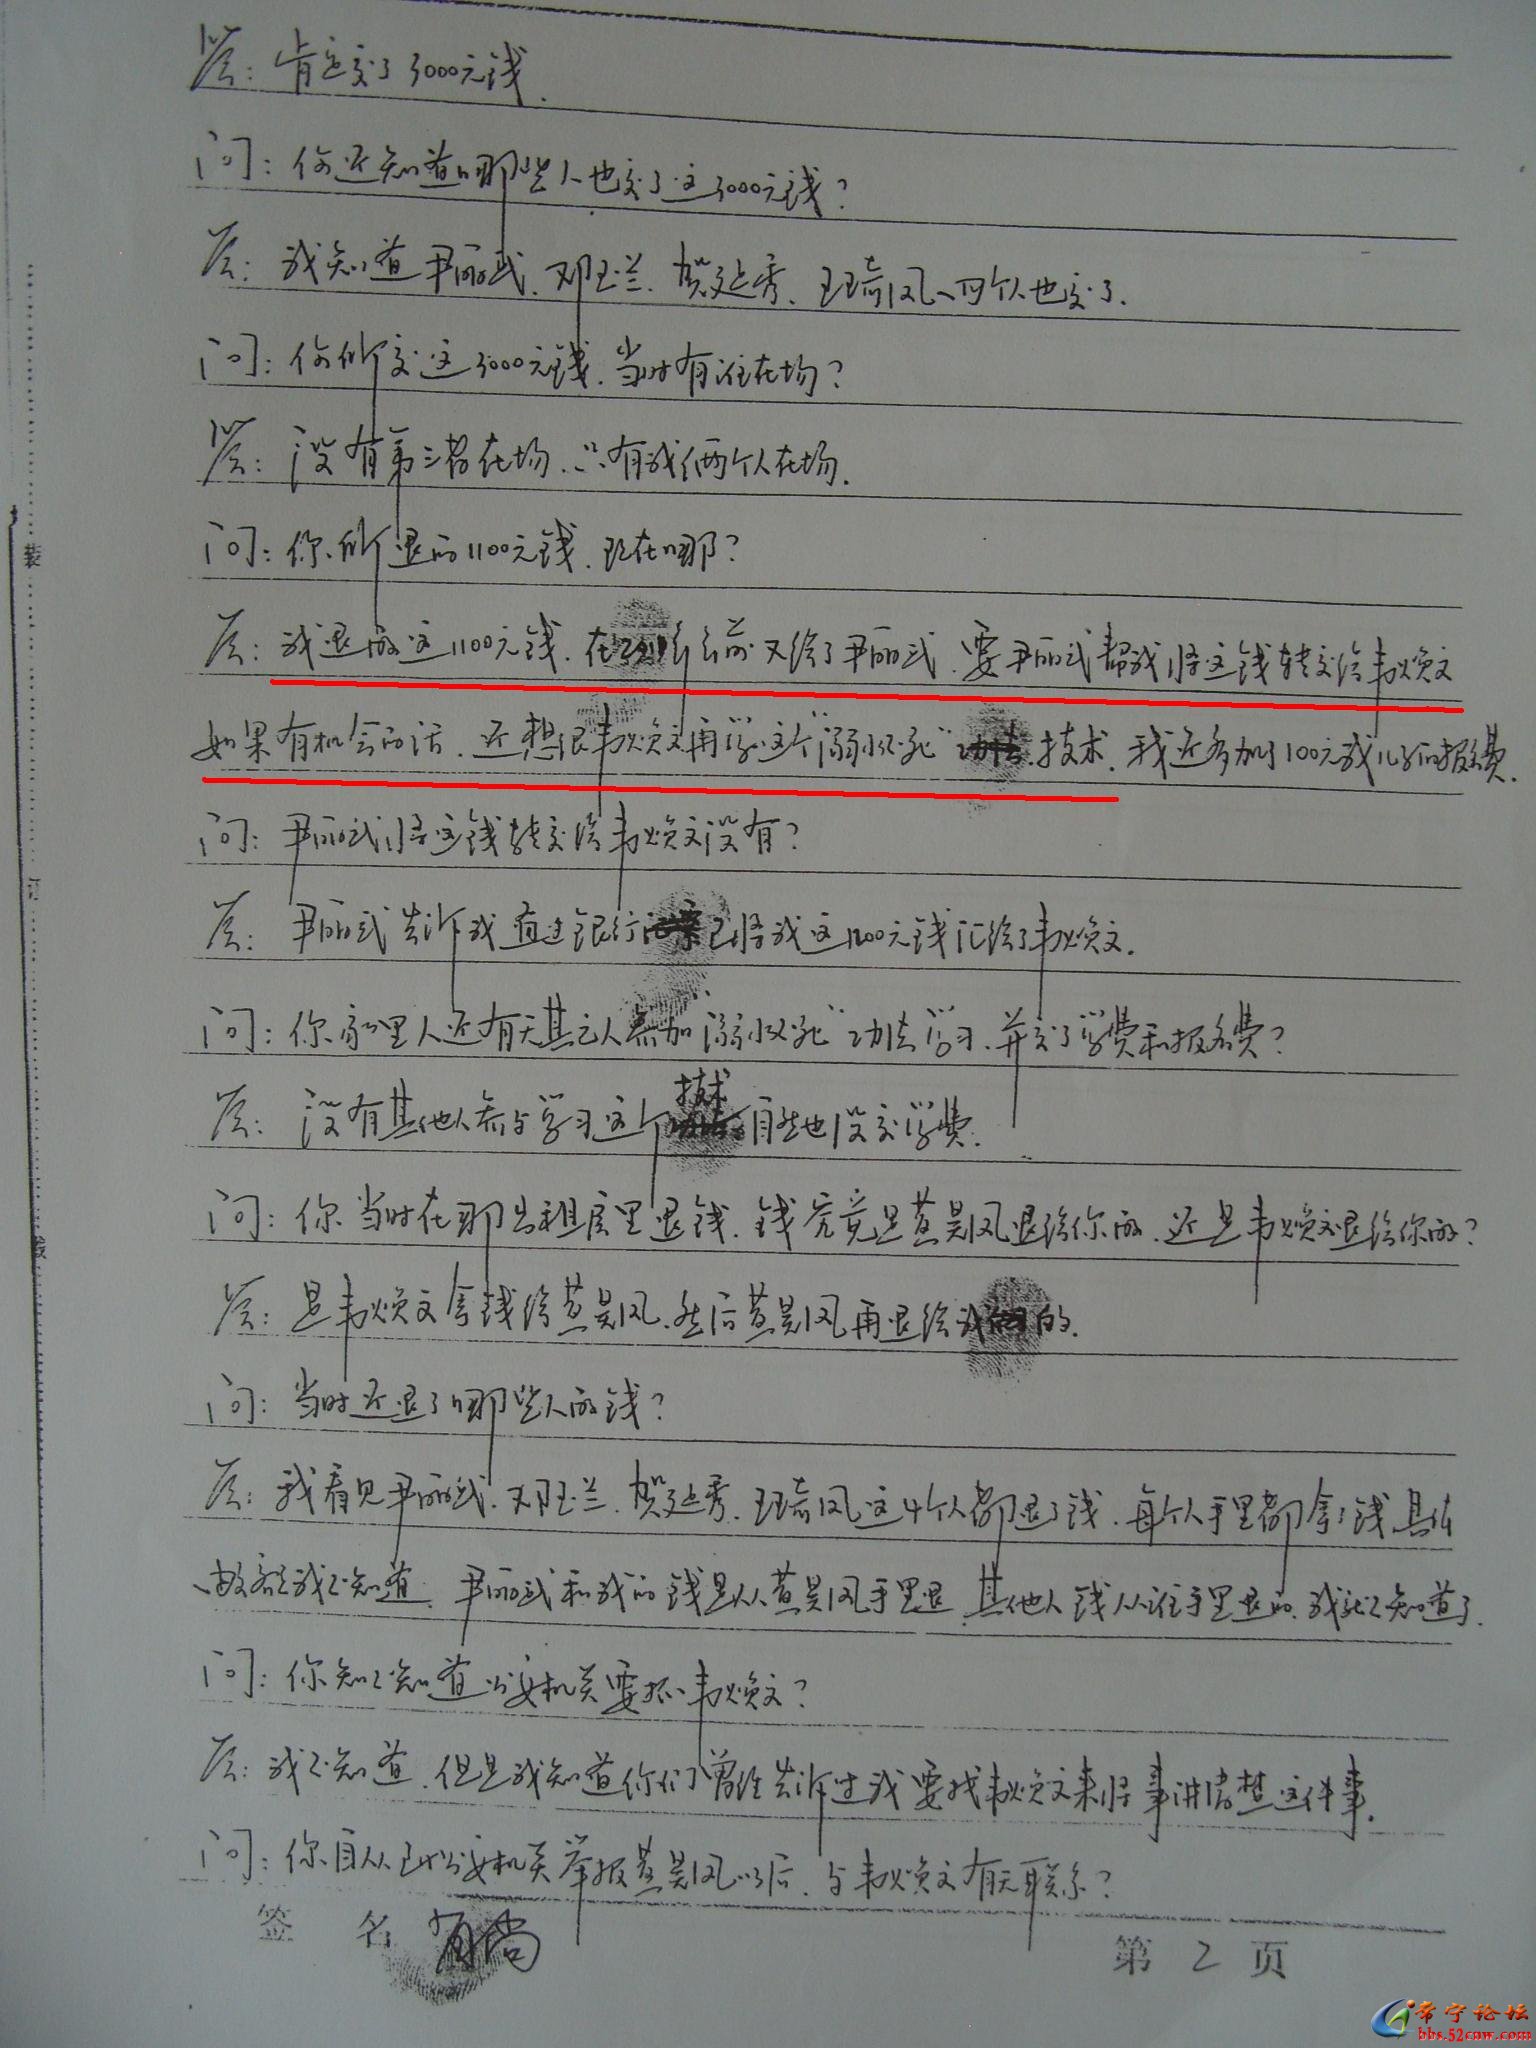 答：肯定交了3000元钱.
问：你还知道哪些人也交了这3000元钱？
答：我知道尹丽武、邓玉兰、贺延秀、王瑞凤、四个人也交了.
问：你所交这3000元钱、当时有谁在场？
答：没有第三者在场、只有我们两个人在场.
问：你所退的1100元钱、现在哪？
答：我退的这1100元钱、在 前又给了尹丽武、要尹丽武帮我将这钱转交给韦焕文
如果有机会的话、还想跟韦焕文再学这个“溺水不死” 技术、我还多加了100元我儿子的报名费.
问：尹丽武将这钱转交给韦焕文没有？
答：尹丽武告诉我 银行 已将我这1200元钱汇给了韦焕文.
问：你家里人还有无其它人参加“溺水不死”功法学习、并交了学费和报名费？
答：没有其他人参与学习这个技术 自然也没交学费.
问：你当时在那出租房里退钱、钱究竟是黄昊风退给你的、还是韦焕文退给你的？
答：是韦焕文拿钱给黄昊风、然后黄昊风再退给我 的.
问：当时还退了哪些人的钱？
答：我看见尹丽武、邓玉兰、贺延秀、王瑞凤这4个人都退了钱、每个人手里都拿了钱、具体
数额我不知道、尹丽武和我的钱是从黄昊风手里退、其他人钱从谁手里退的、我就不知道了.
问：你知不知道公安机关要抓韦焕文？
答：我不知道、但是我知道你们曾经告诉过我要找韦焕文来将事讲清楚这件事.
问：你自从已向公安机关举报黄昊风以后、与韦焕文有无联系？
签 名
第 2 页
装
订
线
常宁论坛
bbs.52cnw.com